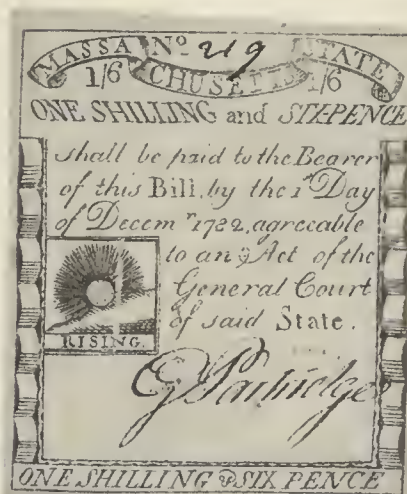 MASSA Nº 219 STATE
1/6 CHUSETTS 1/6
ONE SHILLING and SIX-PENCE
shall be paid to the Bearer
of this Bill, by the 1st Day
of Decemr 1782, agreeable
to an Act of the
General Court
of said State.
RISING.
ONE SHILLING & SIX PENCE